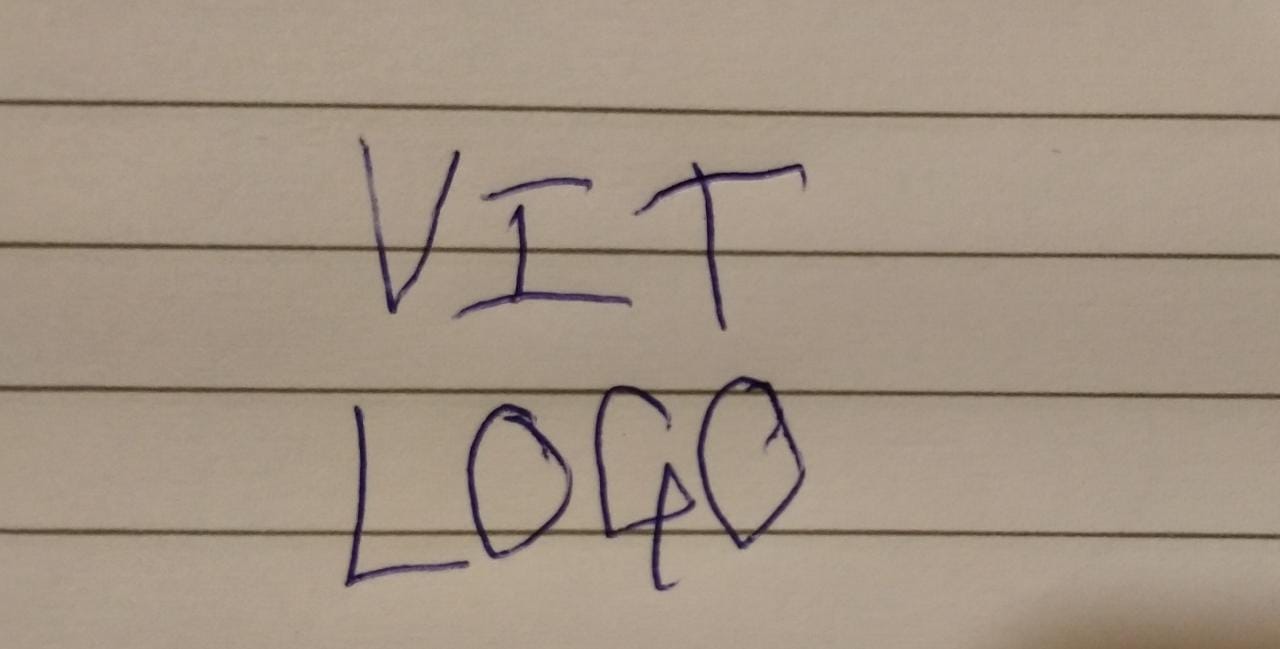 VIT
LOGO